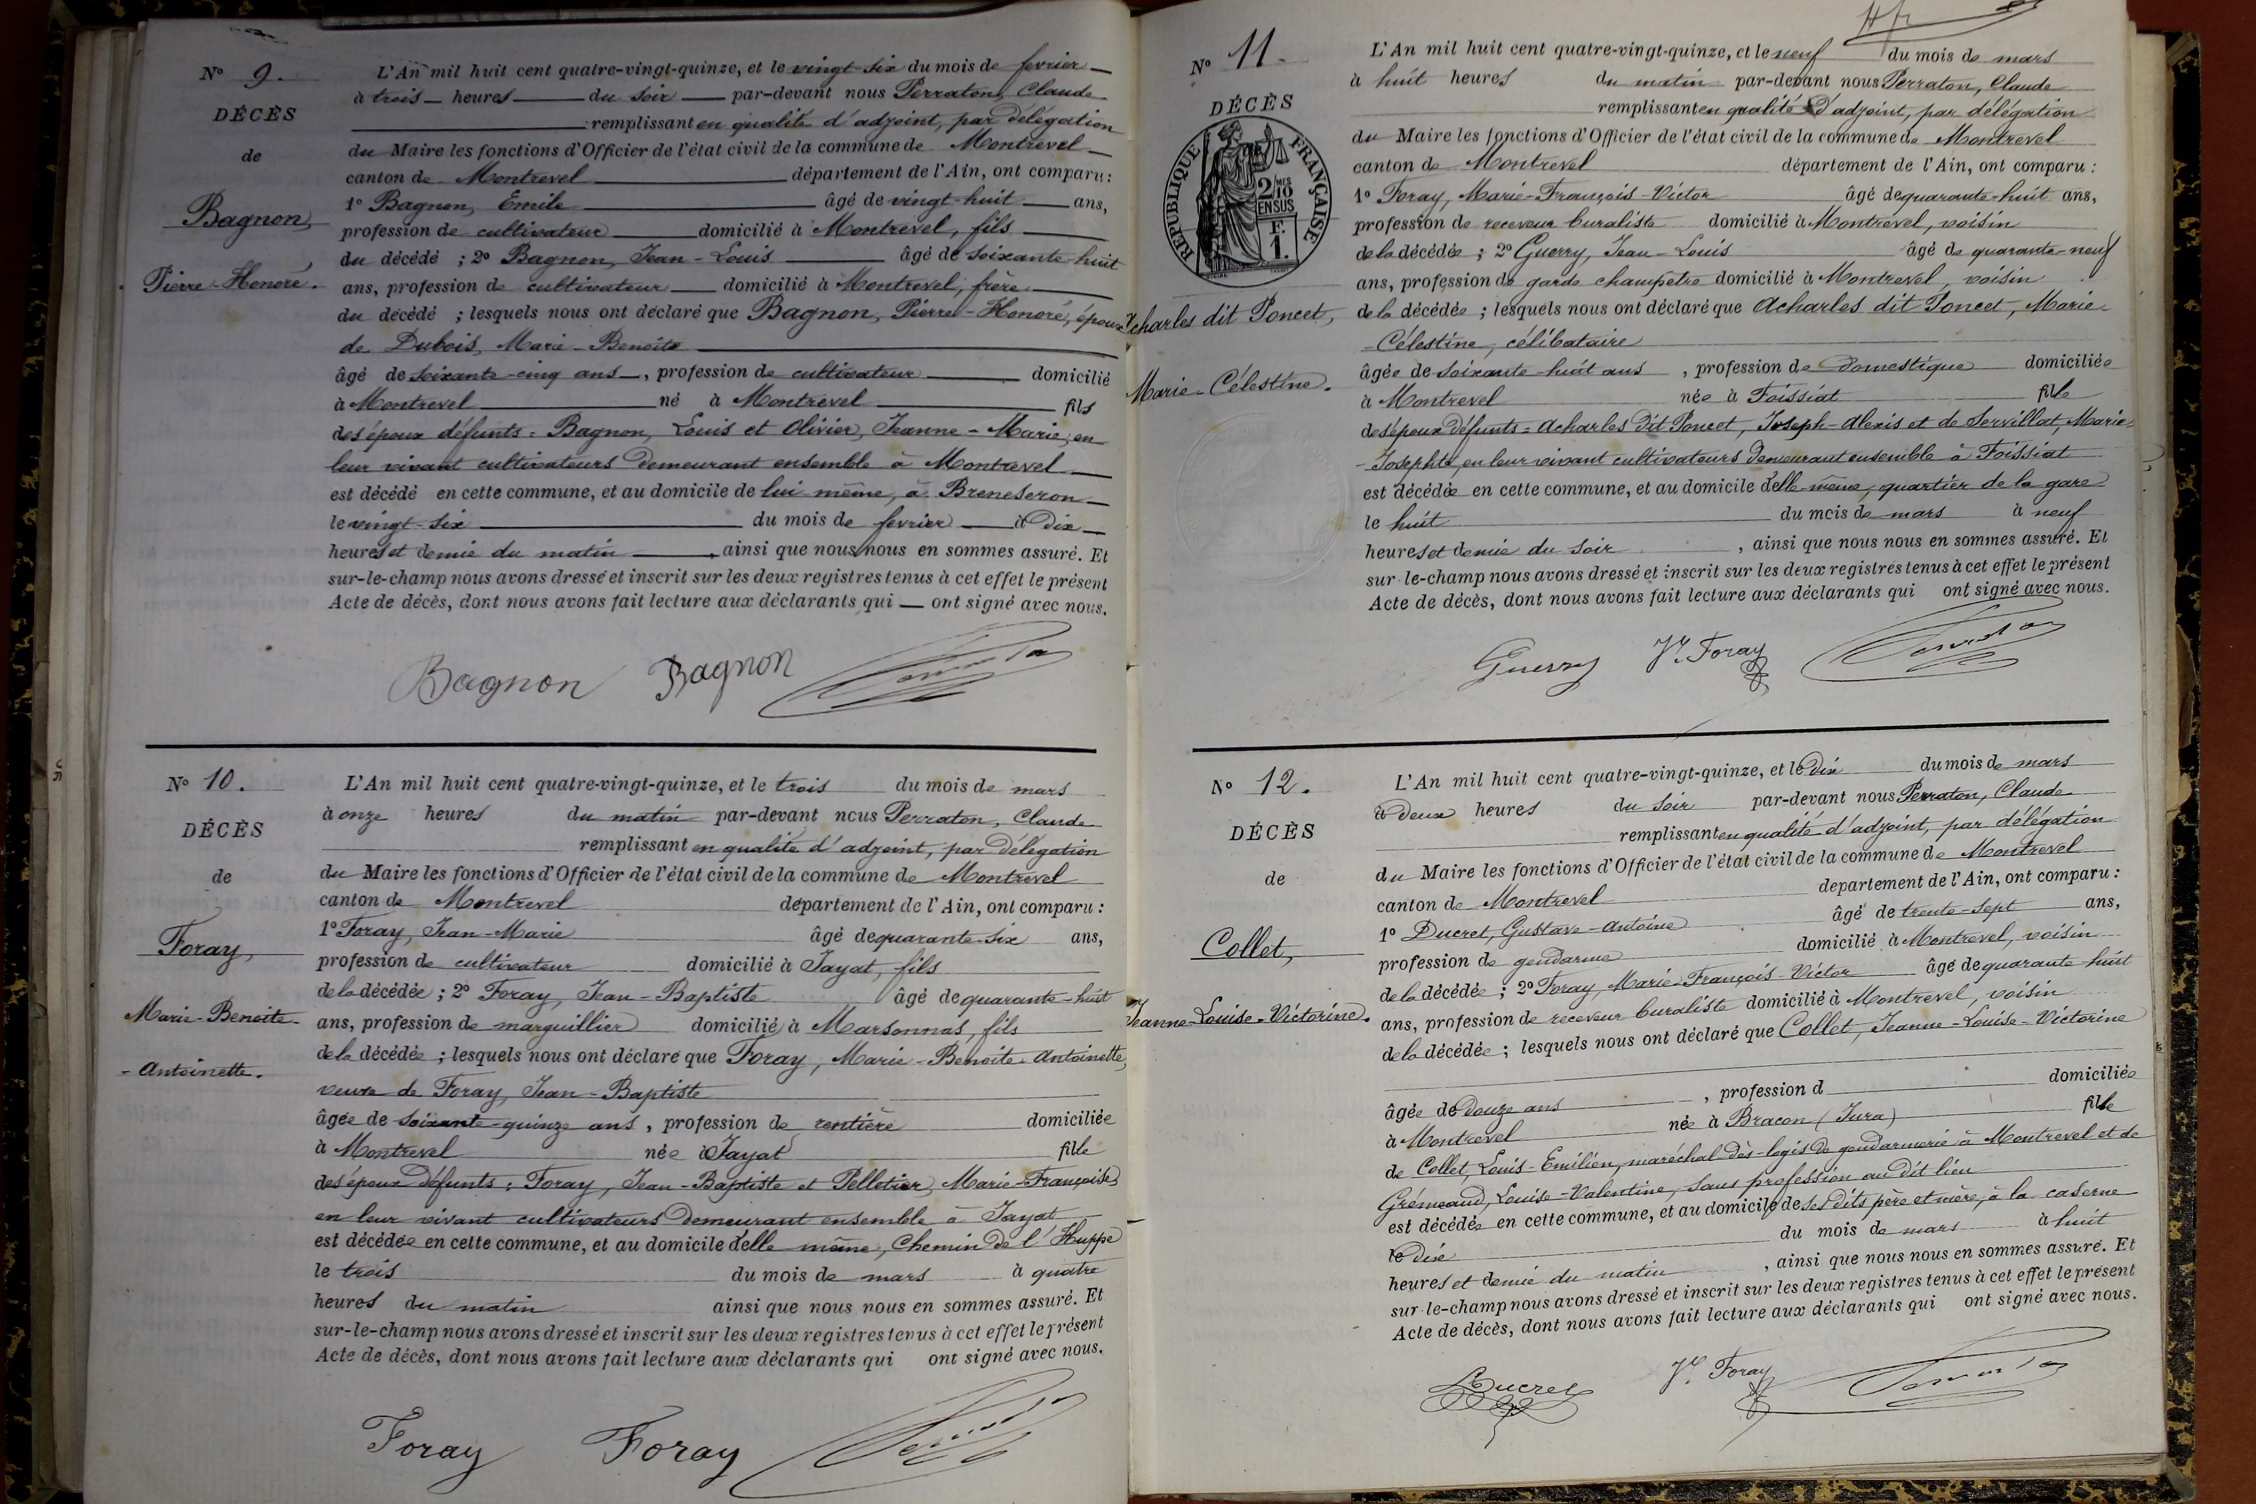 N° 9.
DÉCÈS
de
Bagnon,
Pierre-Honoré.
L'An mil huit cent quatre-vingt-quinze, et le vingt-six du mois de fevrier
à trois heures du soir par-devant nous Perraton, Claude
remplissant en qualité d'adjoint, par délégation
du Maire les fonctions d'Officier de l'état civil de la commune de Montrevel
canton de Montrevel département de l'Ain, ont comparu :
1° Bagnon, Emile âgé de vingt-huit ans,
profession de cultivateur domicilié à Montrevel, fils
du décédé ; 2° Bagnon, Jean-Louis âgé de soixante-huit
ans, profession de cultivateur domicilié à Montrevel, frère
du décédé ; lesquels nous ont déclaré que Bagnon, Pierre-Honoré, époux
de Dubois, Marie-Benoite
âgé de soixante-cinq ans, profession de cultivateur domicilié
à Montrevel né à Montrevel fils
des époux défunts : Bagnon, Louis et Olivier, Jeanne-Marie, en
leur vivant cultivateurs demeurant ensemble à Montrevel
est décédé en cette commune, et au domicile de lui même, à Breneseron
le vingt-six du mois de fevrier à dix
heures et demie du matin, ainsi que nous nous en sommes assuré. Et
sur-le-champ nous avons dressé et inscrit sur les deux registres tenus à cet effet le présent
Acte de décès, dont nous avons fait lecture aux déclarants qui ont signé avec nous.
Bagnon Bagnon Perraton
N° 10.
DÉCÈS
de
Foray,
Marie-Benoite-
-Antoinette.
L'An mil huit cent quatre-vingt-quinze, et le trois du mois de mars
à onze heures du matin par-devant nous Perraton, Claude
remplissant en qualité d'adjoint, par délégation
du Maire les fonctions d'Officier de l'état civil de la commune de Montrevel
canton de Montrevel département de l'Ain, ont comparu :
1° Foray, Jean-Marie âgé de quarante-six ans,
profession de cultivateur domicilié à Jayat, fils
de la décédée ; 2° Foray, Jean-Baptiste âgé de quarante-huit
ans, profession de marguillier domicilié à Marsonnas, fils
de la décédée ; lesquels nous ont déclaré que Foray, Marie-Benoite-Antoinette,
veuve de Foray, Jean-Baptiste
âgée de soixante-quinze ans, profession de rentière domiciliée
à Montrevel née à Jayat fille
des époux défunts : Foray, Jean-Baptiste et Pelletier, Marie-Françoise,
en leur vivant cultivateurs demeurant ensemble à Jayat
est décédée en cette commune, et au domicile d'elle même, Chemin de l'Huppe
le trois du mois de mars à quatre
heures du matin ainsi que nous nous en sommes assuré. Et
sur-le-champ nous avons dressé et inscrit sur les deux registres tenus à cet effet le présent
Acte de décès, dont nous avons fait lecture aux déclarants qui ont signé avec nous.
Foray Foray Perraton
N° 11.
DÉCÈS
RÉPUBLIQUE FRANÇAISE
2/10 MES
EN SUS
F.
1.
Acharles dit Poncet,
Marie-Célestine.
L'An mil huit cent quatre-vingt-quinze, et le neuf du mois de mars
à huit heures du matin par-devant nous Perraton, Claude
remplissant en qualité d'adjoint, par délégation
du Maire les fonctions d'Officier de l'état civil de la commune de Montrevel
canton de Montrevel département de l'Ain, ont comparu :
1° Foray, Marie-François-Victor âgé de quarante-huit ans,
profession de receveur buraliste domicilié à Montrevel, voisin
de la décédée ; 2° Guerry, Jean-Louis âgé de quarante-neuf
ans, profession de garde champêtre domicilié à Montrevel, voisin
de la décédée ; lesquels nous ont déclaré que Acharles dit Poncet, Marie-
-Célestine, célibataire
âgée de soixante-huit ans, profession de domestique domiciliée
à Montrevel née à Foissiat fille
des époux défunts : Acharles dit Poncet, Joseph-Alexis et de Servillat, Marie-
-Josephte, en leur vivant cultivateurs demeurant ensemble à Foissiat
est décédée en cette commune, et au domicile d'elle-même, quartier de la gare
le huit du mois de mars à neuf
heures et demie du soir, ainsi que nous nous en sommes assuré. Et
sur-le-champ nous avons dressé et inscrit sur les deux registres tenus à cet effet le présent
Acte de décès, dont nous avons fait lecture aux déclarants qui ont signé avec nous.
Guerry Vr. Foray Perraton
N° 12.
DÉCÈS
de
Collet,
Jeanne-Louise-Victorine.
L'An mil huit cent quatre-vingt-quinze, et le dix du mois de mars
à deux heures du soir par-devant nous Perraton, Claude
remplissant en qualité d'adjoint, par délégation
du Maire les fonctions d'Officier de l'état civil de la commune de Montrevel
canton de Montrevel département de l'Ain, ont comparu :
1° Ducret, Gustave-Antoine âgé de trente-sept ans,
profession de gendarme domicilié à Montrevel, voisin
de la décédée ; 2° Foray, Marie-François-Victor âgé de quarante-huit
ans, profession de receveur buraliste domicilié à Montrevel, voisin
de la décédée ; lesquels nous ont déclaré que Collet, Jeanne-Louise-Victorine
âgée de douze ans, profession d domiciliée
à Montrevel née à Bracon (Jura) fille
de Collet, Louis-Emilien, maréchal des-logis de gendarmerie à Montrevel et de
Grémeaud, Louise-Valentine, sans profession au dit lieu
est décédée en cette commune, et au domicile de ses dits père et mère, à la caserne
le dix du mois de mars à huit
heures et demie du matin, ainsi que nous nous en sommes assuré. Et
sur-le-champ nous avons dressé et inscrit sur les deux registres tenus à cet effet le présent
Acte de décès, dont nous avons fait lecture aux déclarants qui ont signé avec nous.
Ducret Vr. Foray Perraton